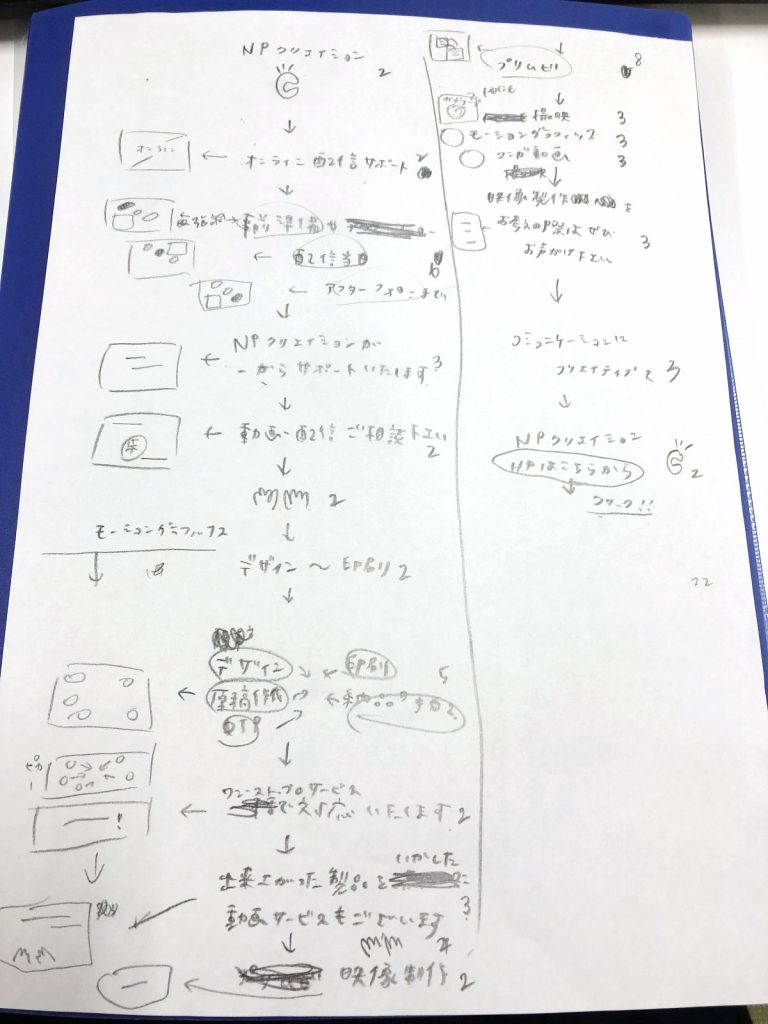 NPクリエイション
2
オンライン
オンライン配信サポート
2
前準備や
配信当日
アフターフォローまで
NPクリエイションが
一からサポートいたします
3
動画・配信 ご相談下さい
2
2
モーショングラフィックス
デザイン 〜 印刷
2
デザイン
印刷
5
原稿作成
DTP
ピカー
ワンストップサービス
で対応いたします
2
!
出来上がった製品を
いかした
動画サービスもございます
3
映像制作
2
プリムビ
8
カメラ
撮映
3
モーショングラフィックス
3
マンガ動画
3
映像製作
を
お考えの際はぜひ
お声がけ下さい
3
コミュニケーションに
クリエイティブを
3
NPクリエイション
2
HPはこちらから
クリック!!
22